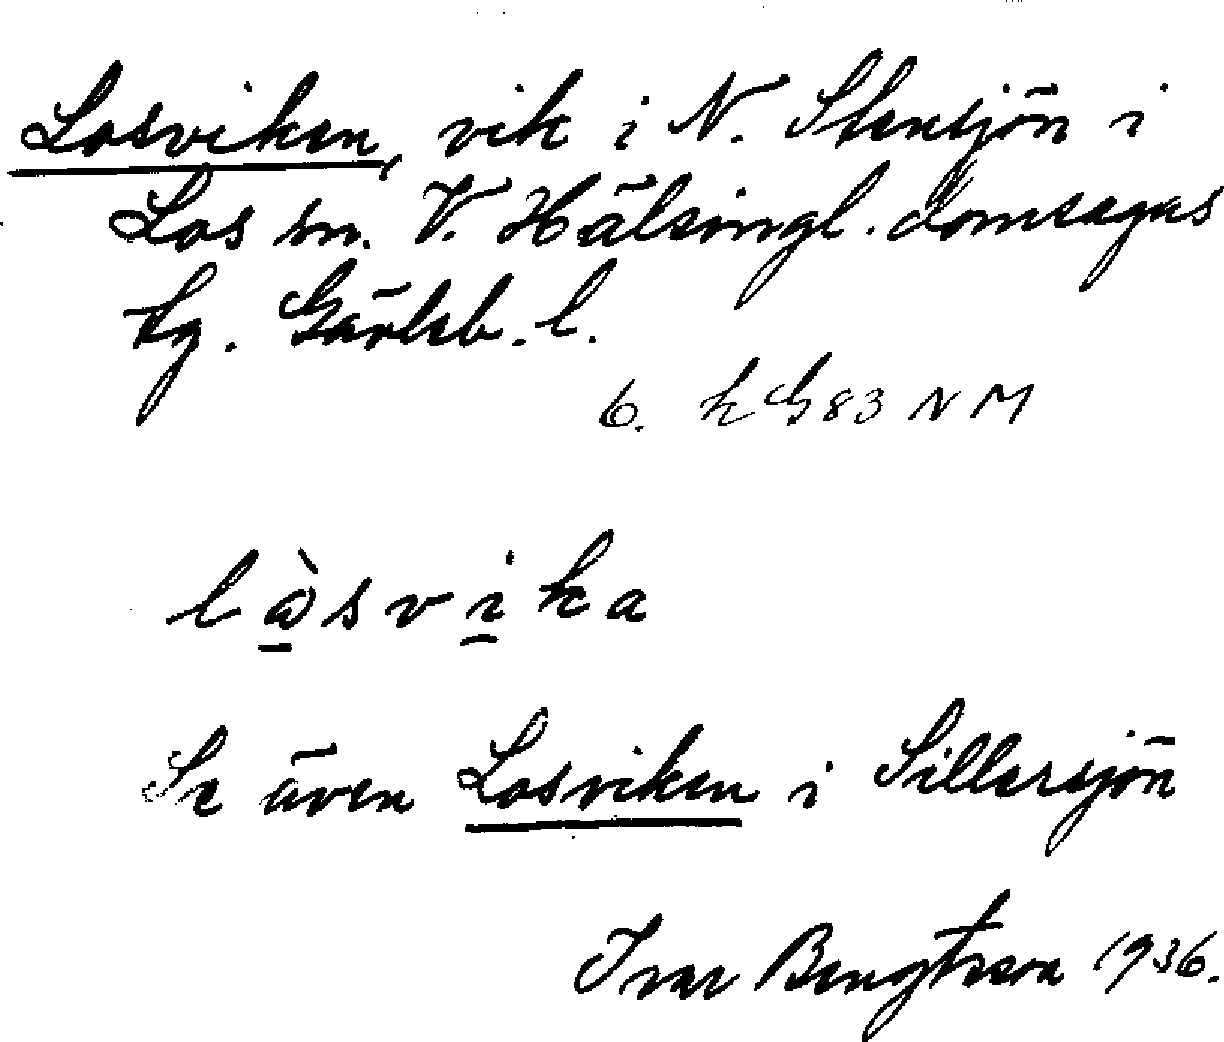 Losviken, vik i N. Stensjön i
Los sn. V. Hälsingl. domsagas
tg. Gävleb. l.
6. 83 NM
Se även Losviken i Sillersjön
Ivar Bengtsson 1936.